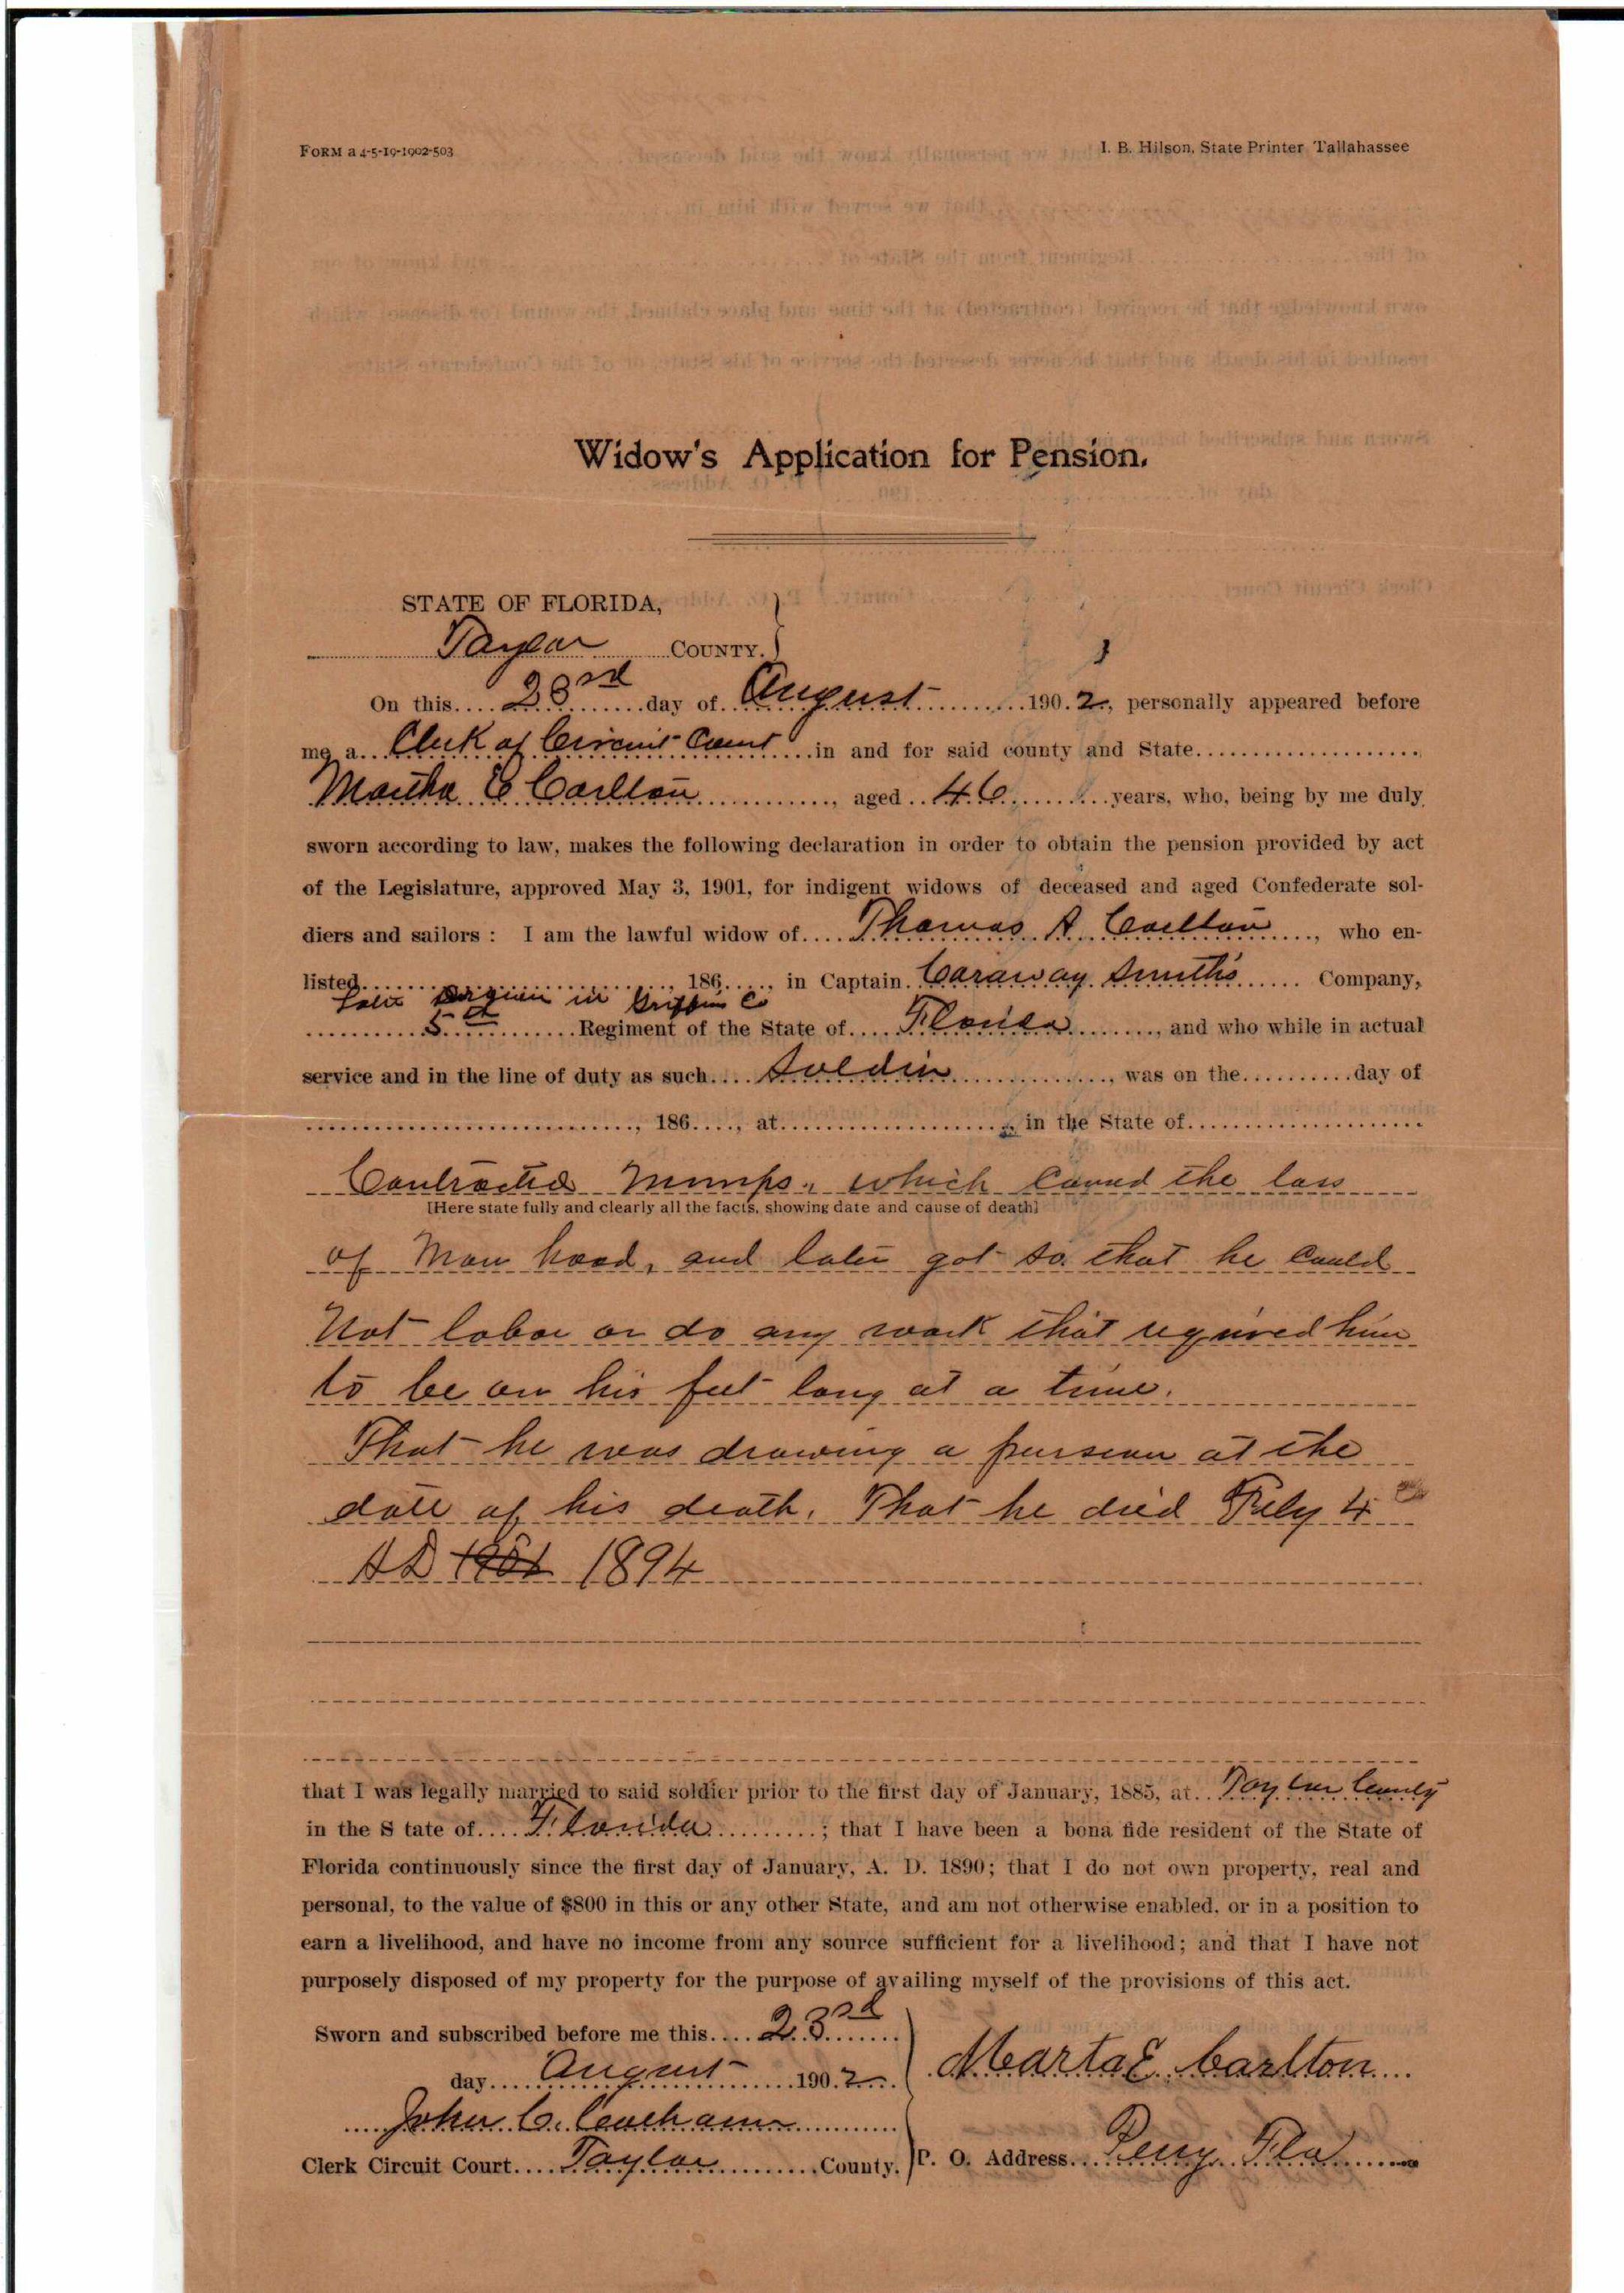 FORM a 4-5-19-1902-503
I. B. Hilson, State Printer Tallahassee
Widow's Application for Pension.
STATE OF FLORIDA,
Taylor COUNTY.
On this 23rd day of August 1902, personally appeared before
me a Clerk of Circuit Court in and for said county and State
Martha E Carlton, aged 46 years, who, being by me duly
sworn according to law, makes the following declaration in order to obtain the pension provided by act
of the Legislature, approved May 3, 1901, for indigent widows of deceased and aged Confederate sol-
diers and sailors : I am the lawful widow of Thomas A Carlton, who en-
listed, 186, in Captain Caraway Smith's Company,
in Griffins Co
5th Regiment of the State of Florida, and who while in actual
service and in the line of duty as such Soldier, was on the day of
, 186, at, in the State of
Contracted Mumps, which caused the loss
[Here state fully and clearly all the facts, showing date and cause of death]
of Man hood, and later got so that he could
Not labor or do any work that required him
to be on his feet long at a time.
That he was drawing a pension at the
date of his death. That he died July 4th
AD 1901 1894
that I was legally married to said soldier prior to the first day of January, 1885, at Taylor County
in the S tate of Florida; that I have been a bona fide resident of the State of
Florida continuously since the first day of January, A. D. 1890; that I do not own property, real and
personal, to the value of $800 in this or any other State, and am not otherwise enabled, or in a position to
earn a livelihood, and have no income from any source sufficient for a livelihood; and that I have not
purposely disposed of my property for the purpose of availing myself of the provisions of this act.
Sworn and subscribed before me this 23rd
day August 1902
Marta E Carlton
John C.
Clerk Circuit Court Taylor County.
P. O. Address Perry Fla